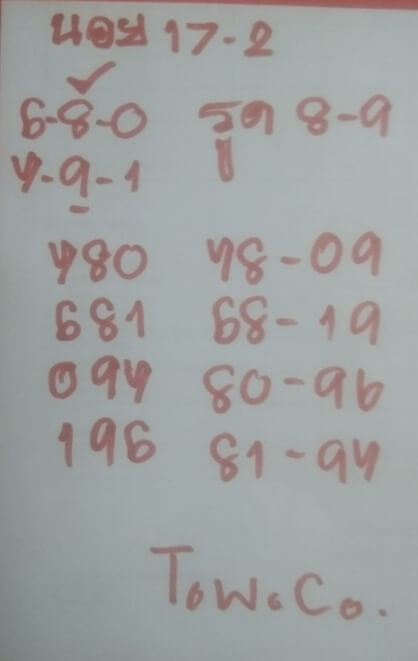 นอย 17-2
6-8-0 รูด 8-9
4-9-1
480 48-09
681 68-19
094 80-96
196 81-94
T.W.Co.